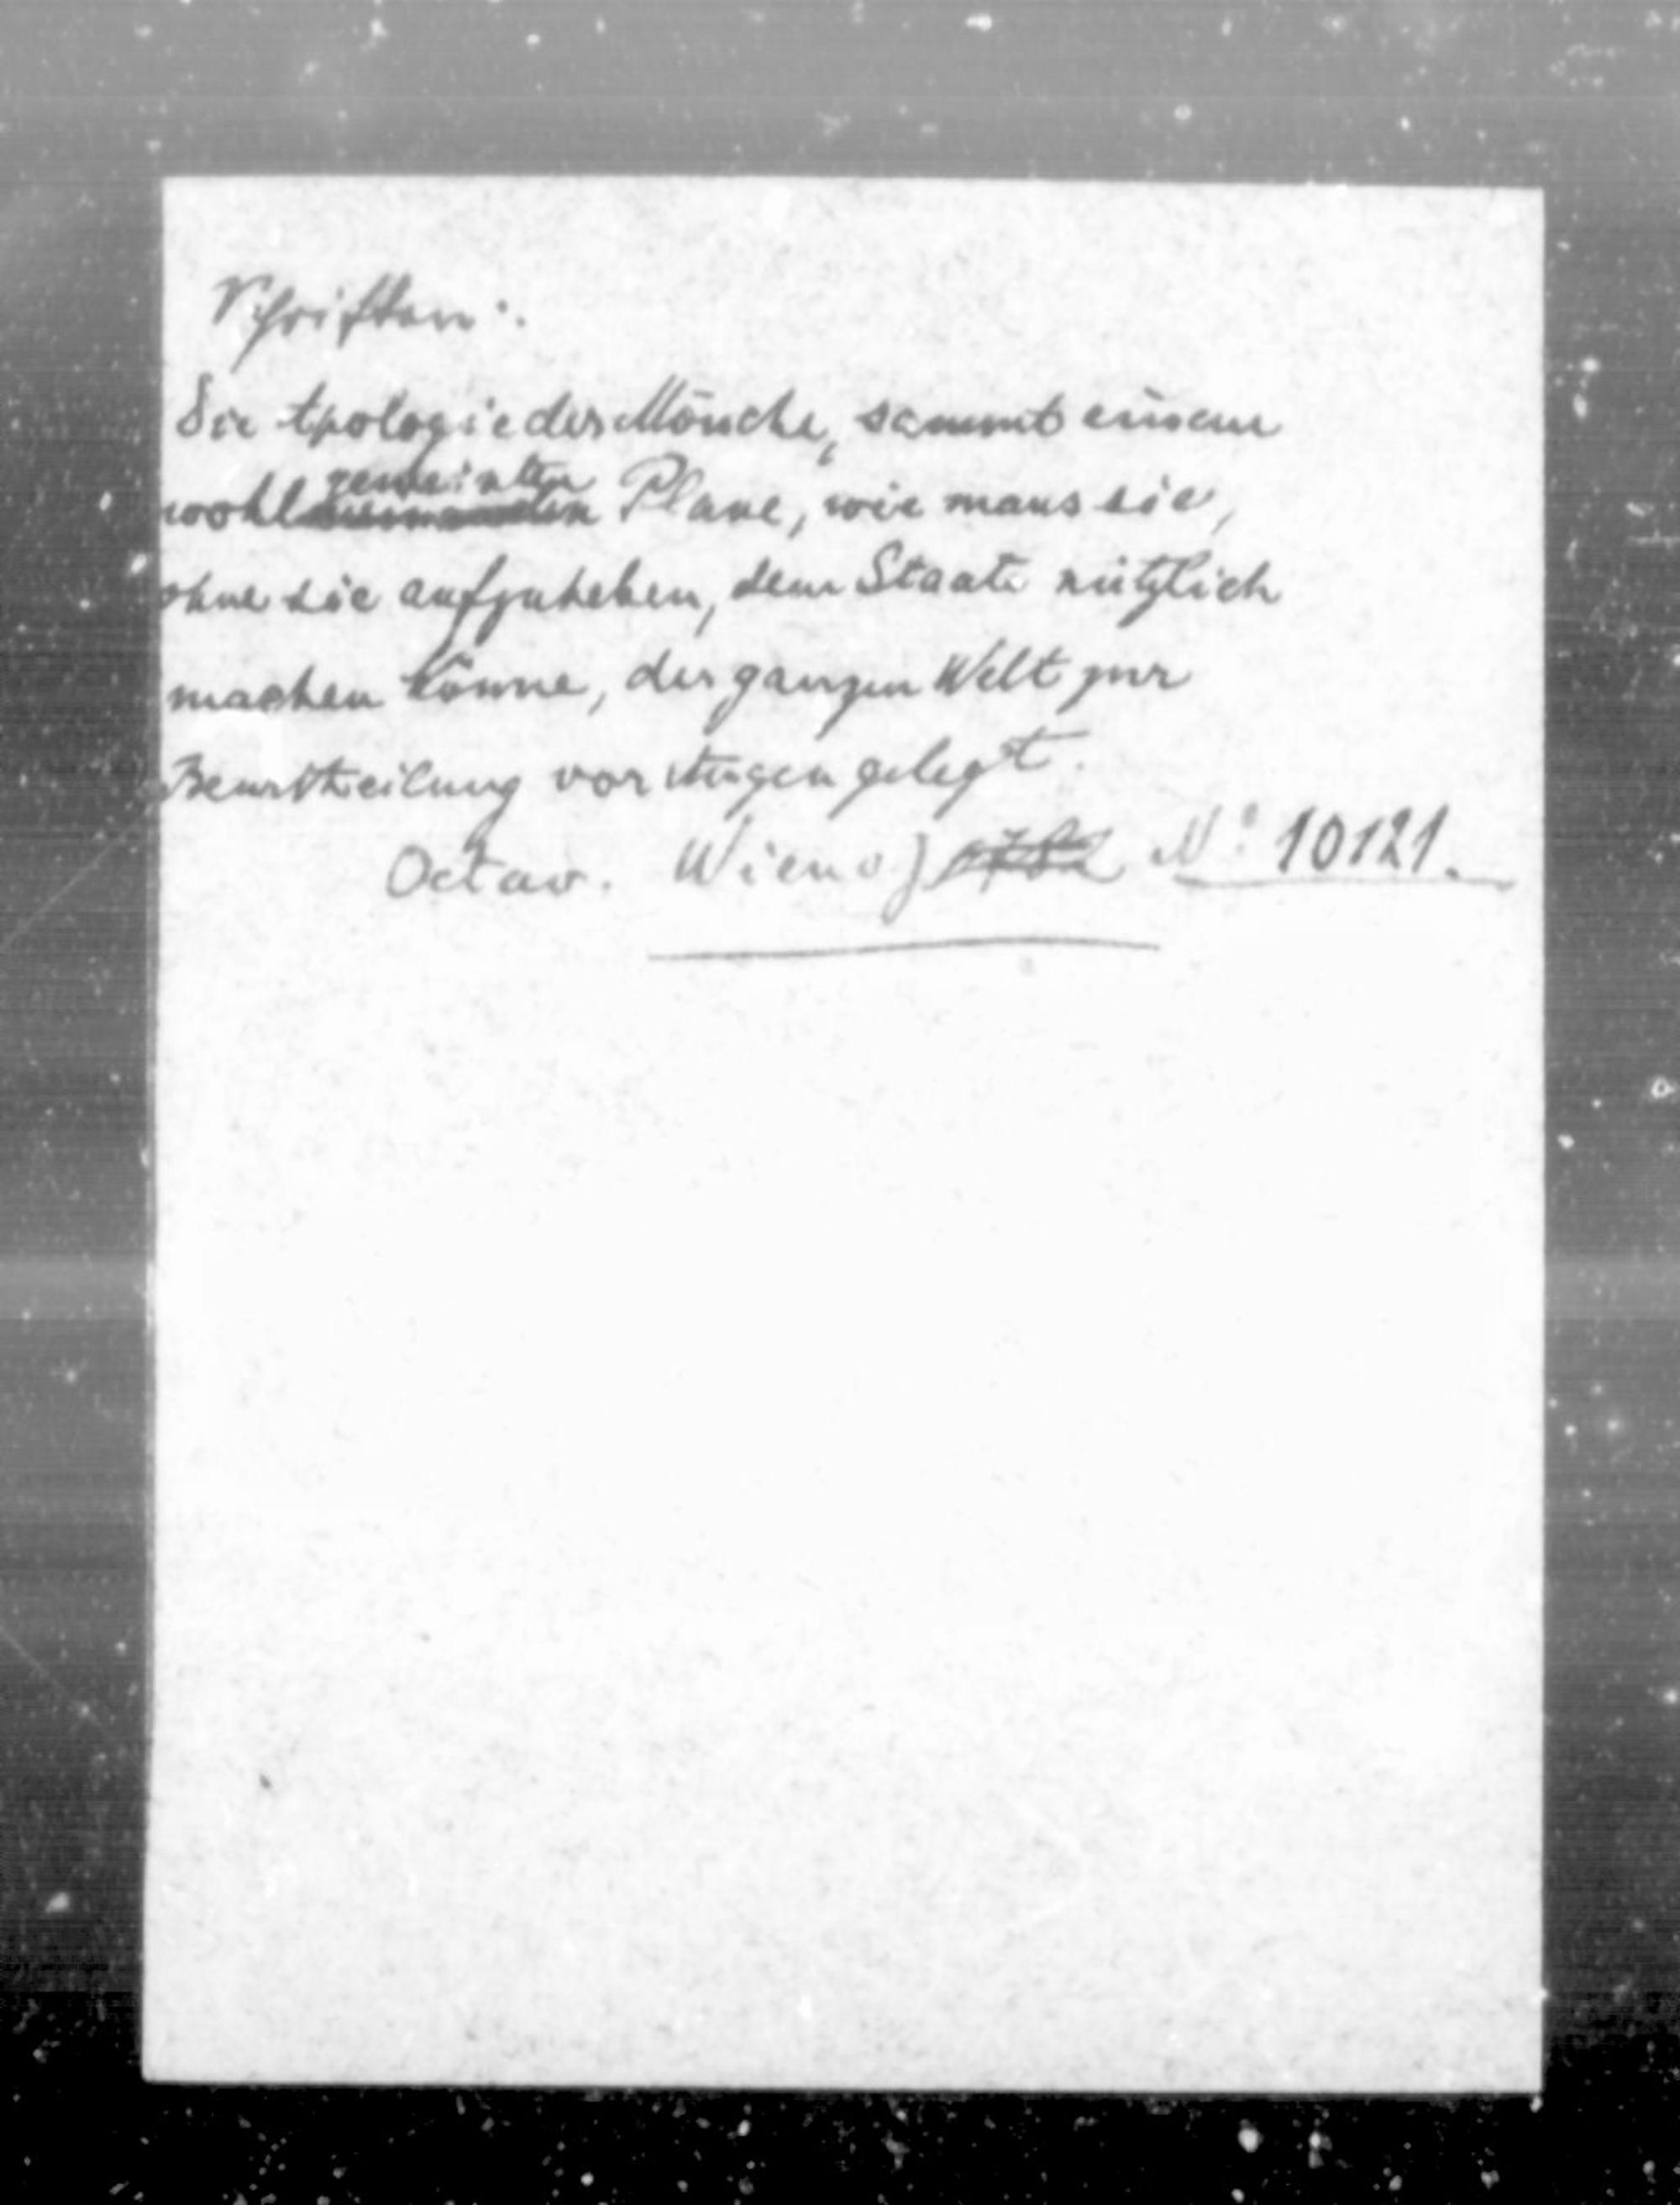 Schriften:
Die Apologie der Mönche, sammt einem
wohlgemeinten Plane, wie man sie,
ohne sie aufzuheben, dem Staate nützlich
machen könne, der ganzen Welt zur
Beurtheilung vor Augen gelegt.
Octav. Wien o J 1782 No 10121.